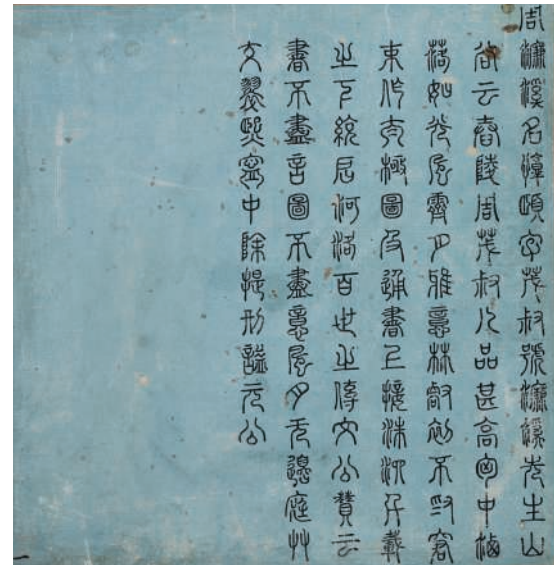 周濂溪名惇頤字茂叔號濂溪先生山
谷云舂陵周茂叔人品甚高胸中灑
落如光風霽月雅意林壑初不爲窘
束作太極圖及通書上接洙泗千載
之下統启河洛百世之傳文公贊云
書不盡言圖不盡意風月无邊庭艸
交翠熙寧中除提刑諡元公